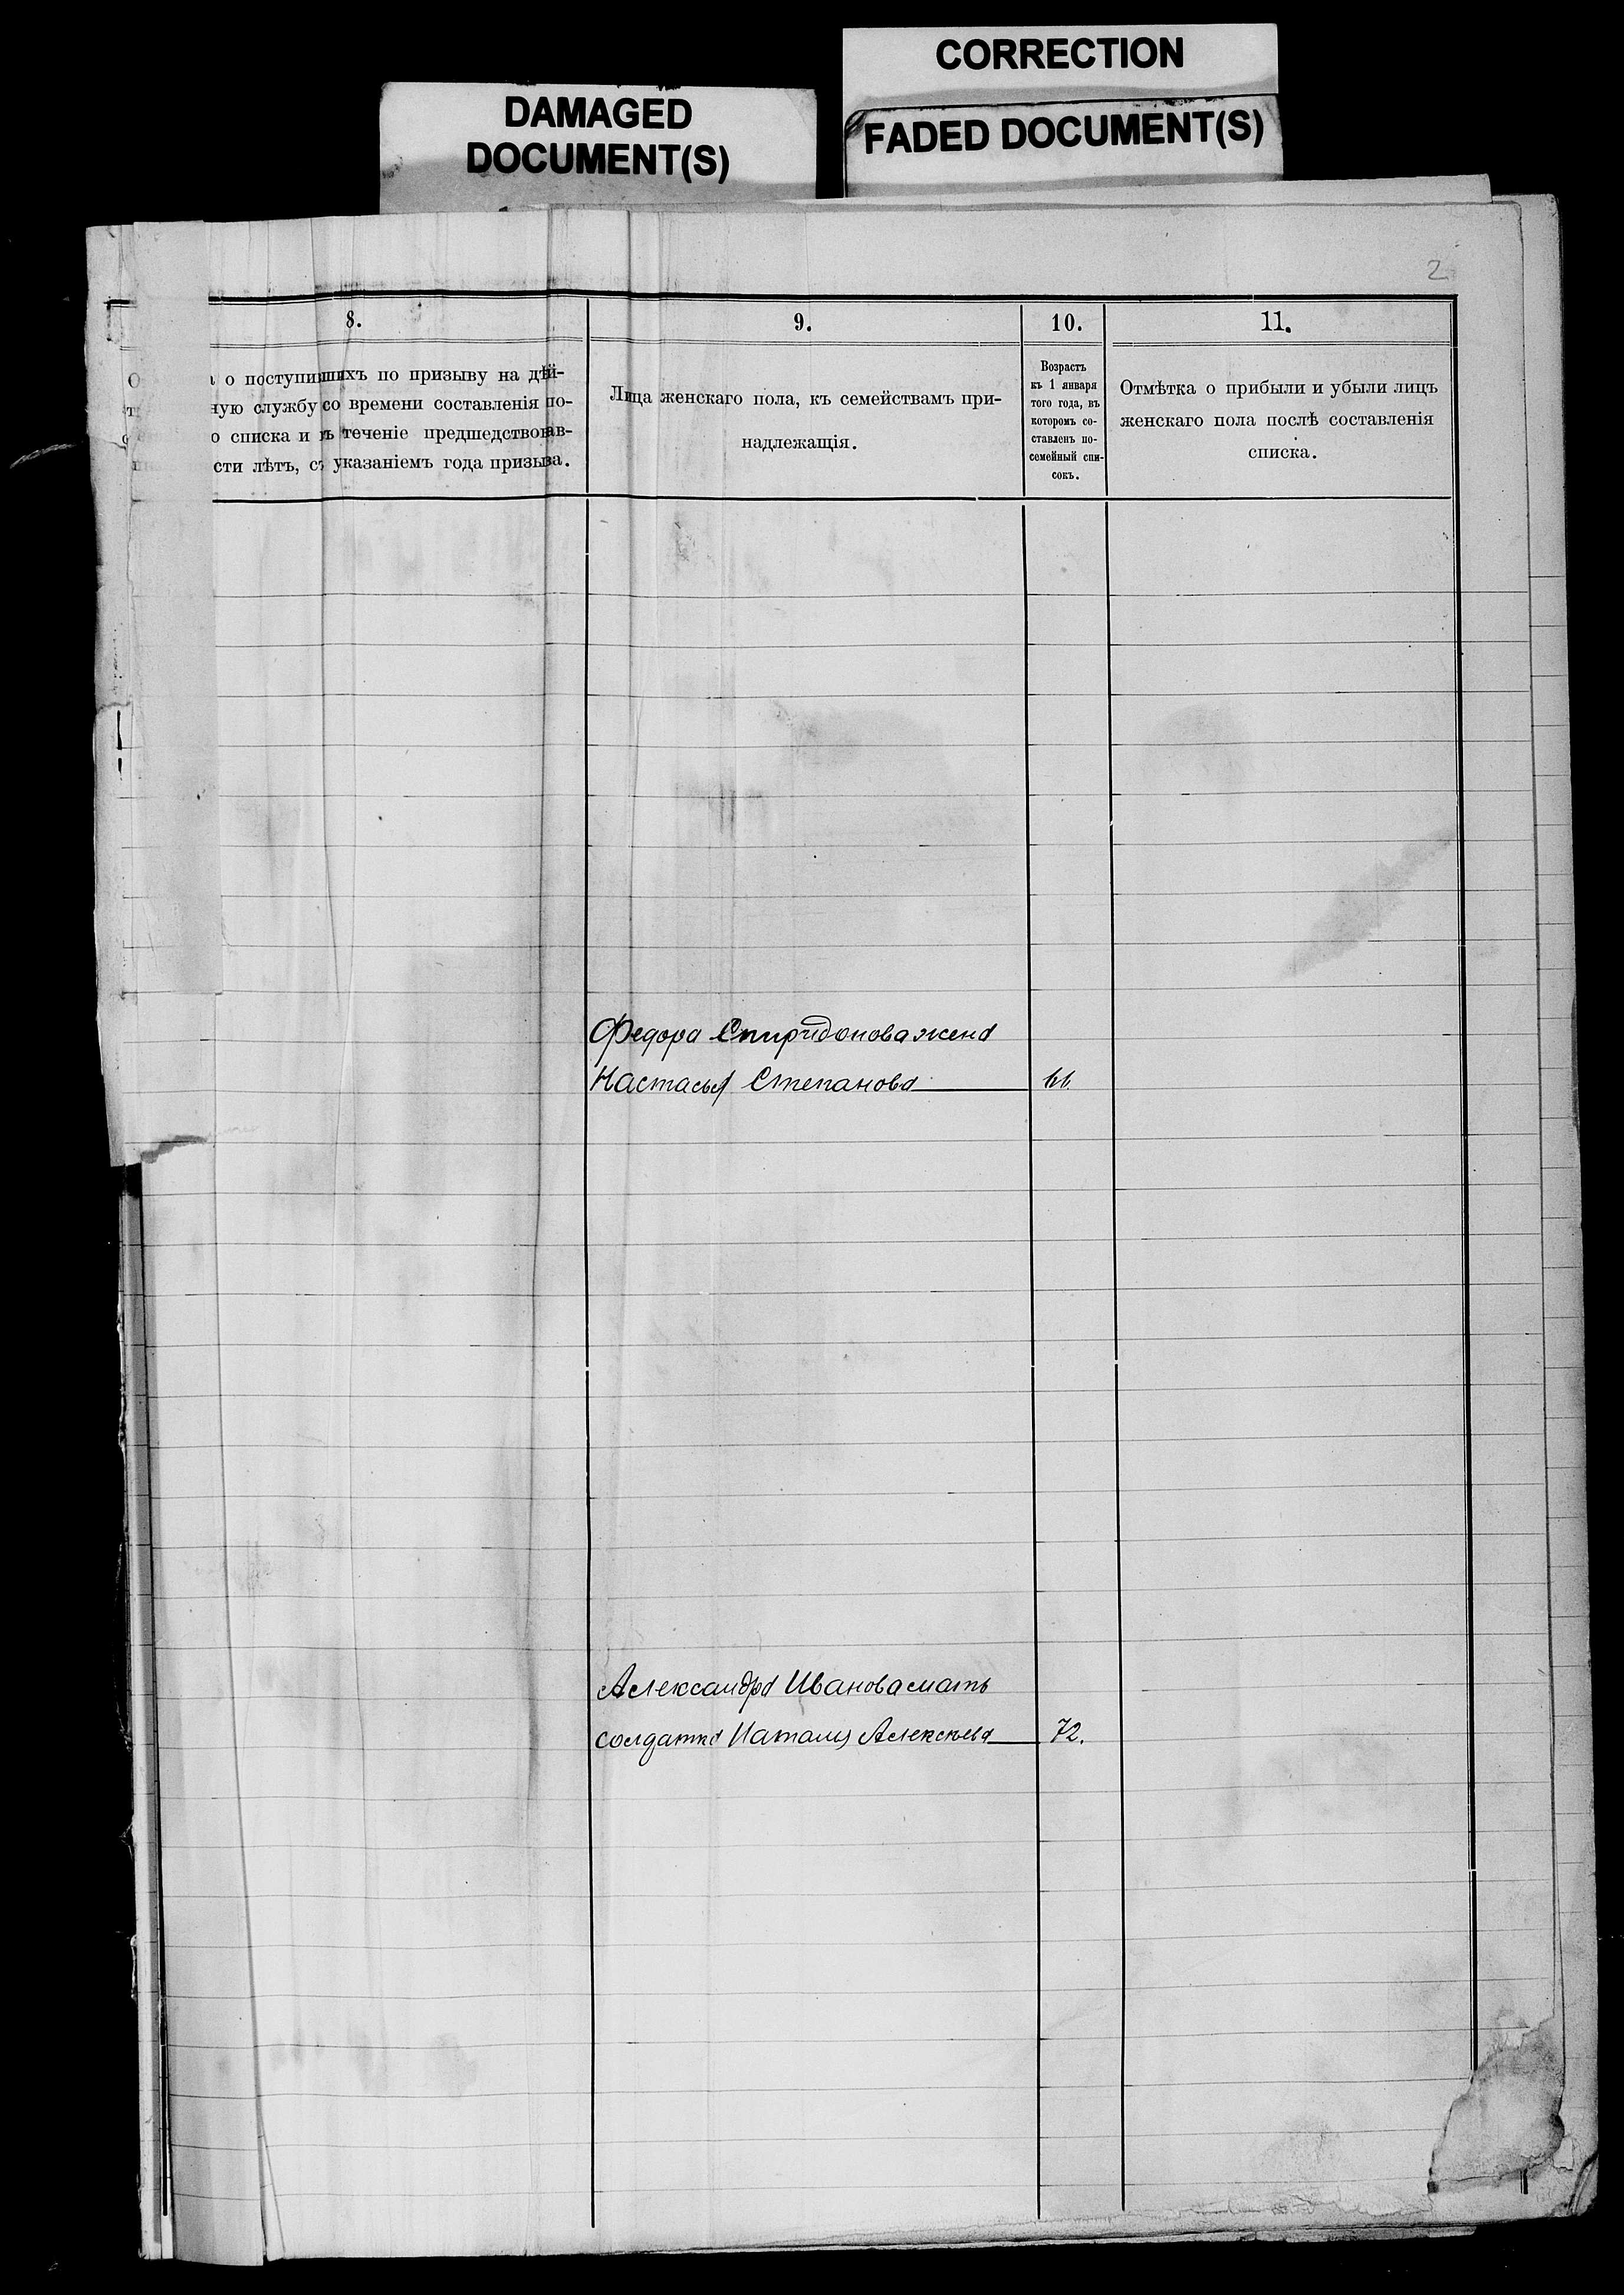 CORRECTION
DAMAGED
DOCUMENT(S)
FADED DOCUMENT(S)
2
8.
9.
10.
11.
о поступившихъ по призыву на дѣй-
ную службу со времени составленія по-
о списка и въ теченіе предшедствовав-
сти лѣтъ, съ указаніемъ года призыва.
Лица женскаго пола, къ семействамъ при-
надлежащія.
Возрастъ
къ 1 января
того года, въ
которомъ со-
ставленъ по-
семейный спи-
сокъ.
Отмѣтка о прибыли и убыли лицъ
женскаго пола послѣ составленія
списка.
Федора Спиридонова жена
Настасья Степанова 66
Александра Иванова мать
солдатка Наталья Алексѣева 72.